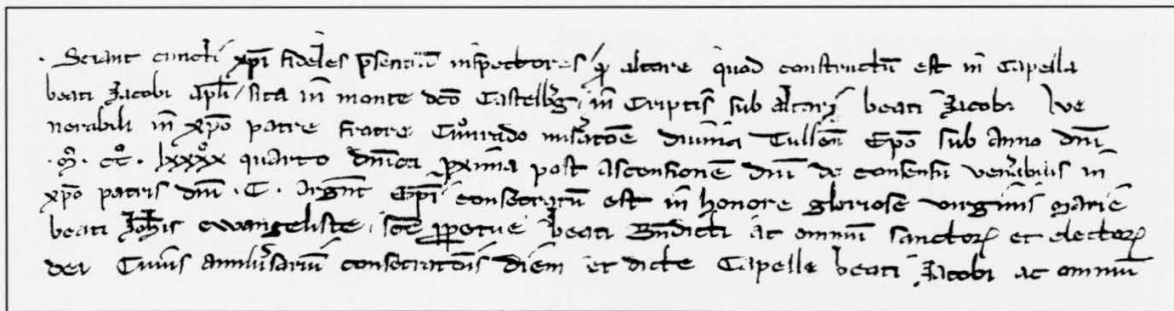 . Sciant cuncti xp̄i fideles p̄sentiū inspectores / qđ altare quod constructū est in Capella
beati Jacobi Apl̄i / sita in monte dc̄o Castelb̄g / in Criptis sub altari beati Jacobi / ve
nerabili in xp̄o patre fratre Cūnrado mis̄atōe divina Tullen̄ Ep̄o sub anno dn̄i
. M̊. CC̊. lxxxx̊ quarto dn̄ica p̄xima post ascensionē dn̄i de consensu ven̄abilis in
xp̄o patris dn̄i . C . Argn̄t Ep̄i consecratū est in honore gloriose virginis Marie
beati Joh̄is ewangeliste / sc̄e ꝑpetue / beati Bn̄dicti ac omniū sanctoꝝ et electoꝝ
dei Cuius anniv̄sariū consecratōis diem et dicte Capelle beati Jacobi ac omniū